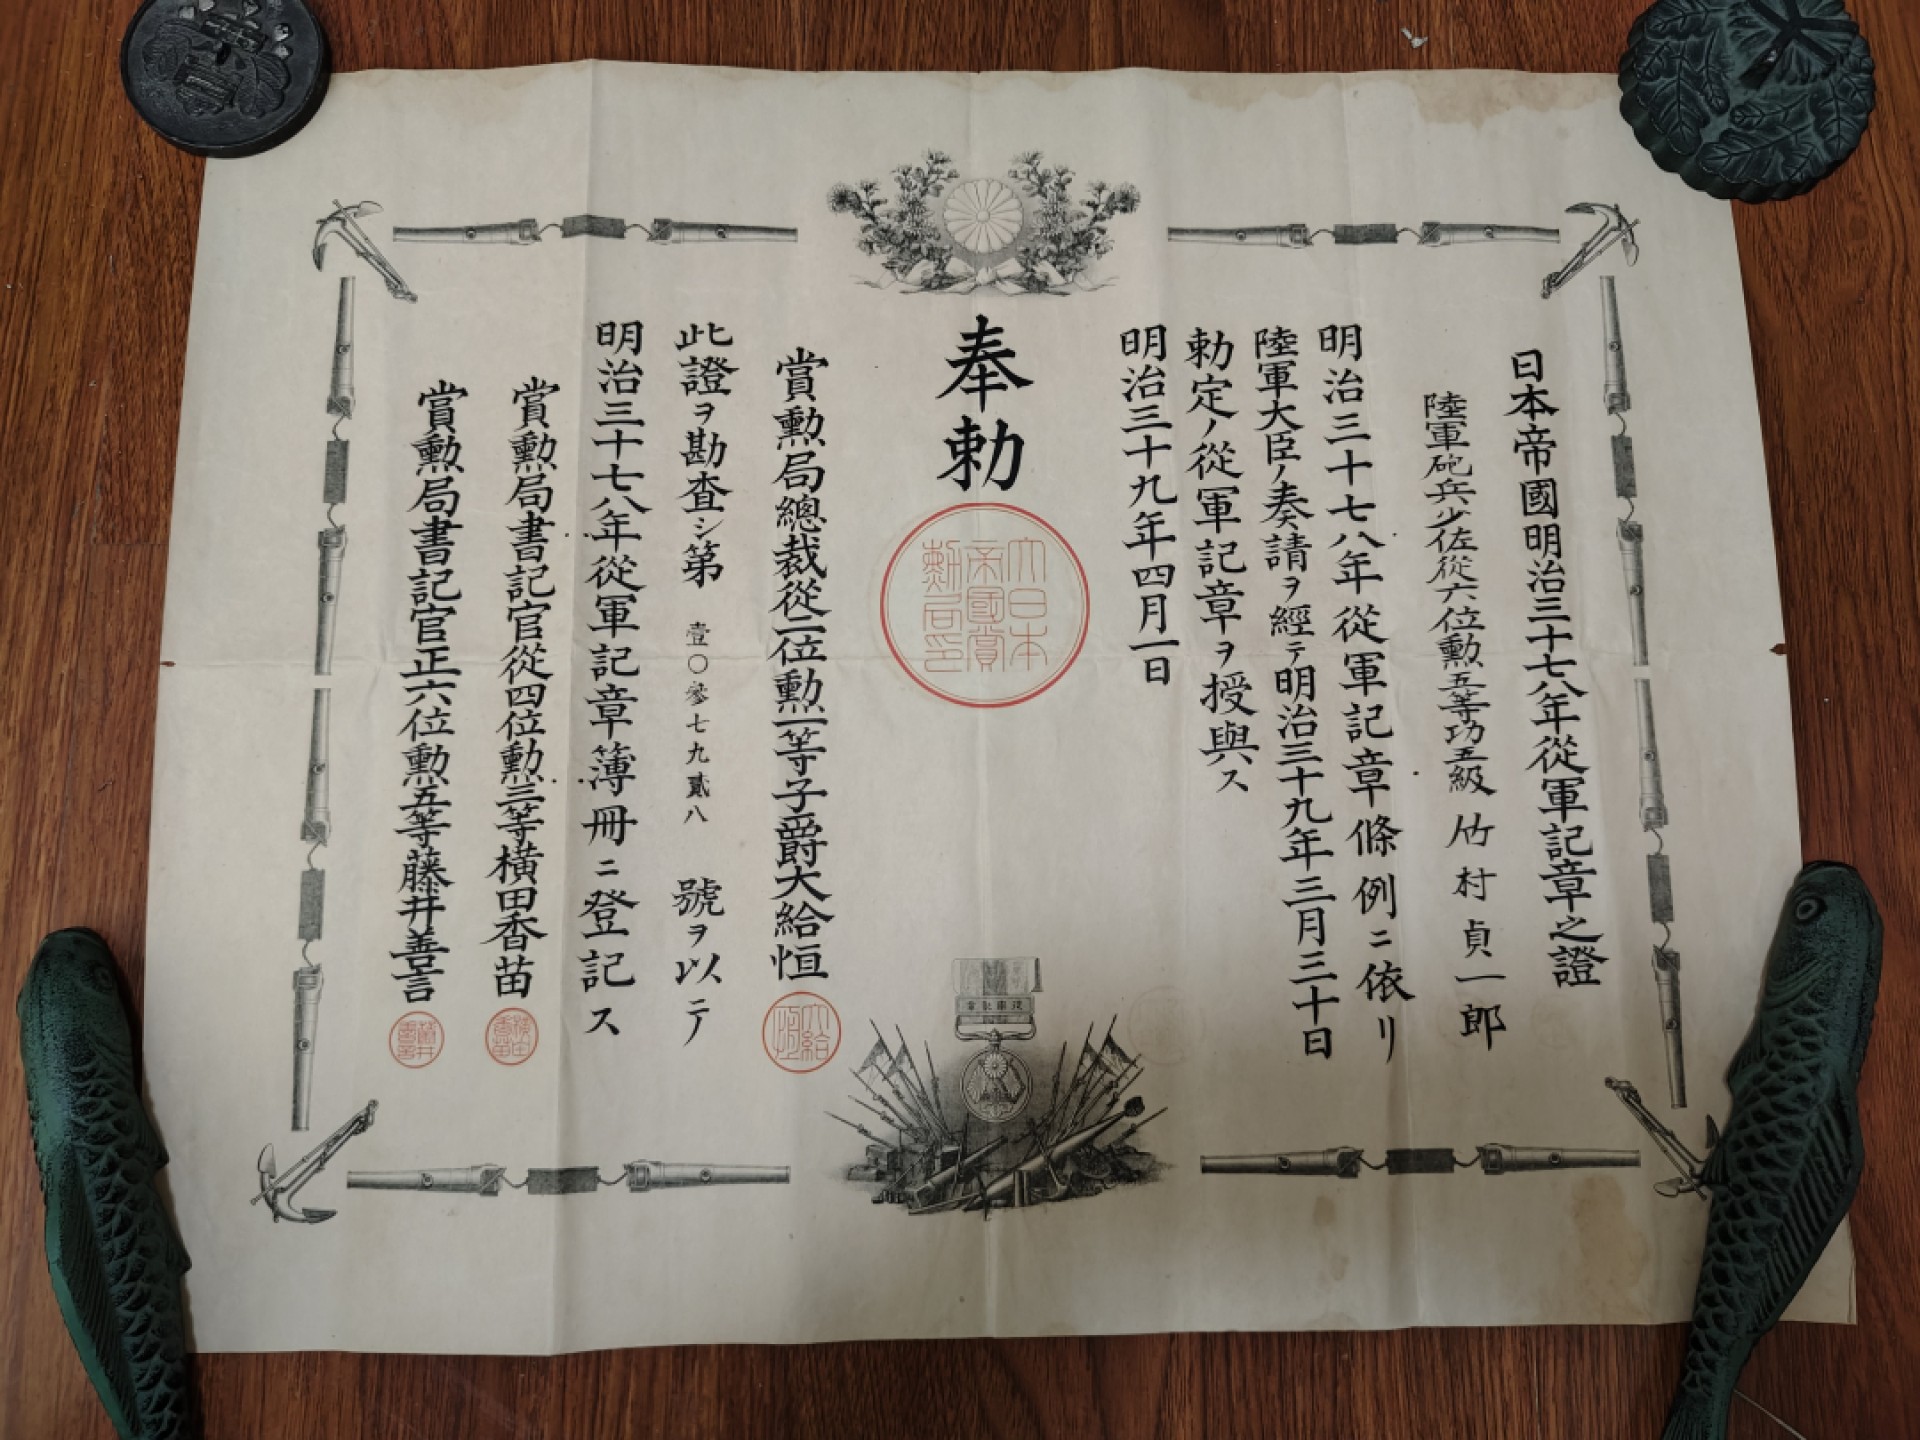 日本帝國明治三十七八年從軍記章之證
陸軍砲兵少佐從六位勳五等功五級 竹村貞一郎
明治三十七八年從軍記章條例ニ依リ
陸軍大臣ノ奏請ヲ經テ明治三十九年三月三十日
勅定ノ從軍記章ヲ授與ス
明治三十九年四月一日
奉勅
大日本
帝國賞
勳局印
賞勳局總裁從二位勳一等子爵大給恒
大給
此證ヲ勘査シ第 壹〇參七九貳八 號ヲ以テ
明治三十七八年從軍記章簿冊ニ登記ス
賞勳局書記官從四位勳三等横田香苗
横田
香苗
賞勳局書記官正六位勳五等藤井善言
藤井
善言